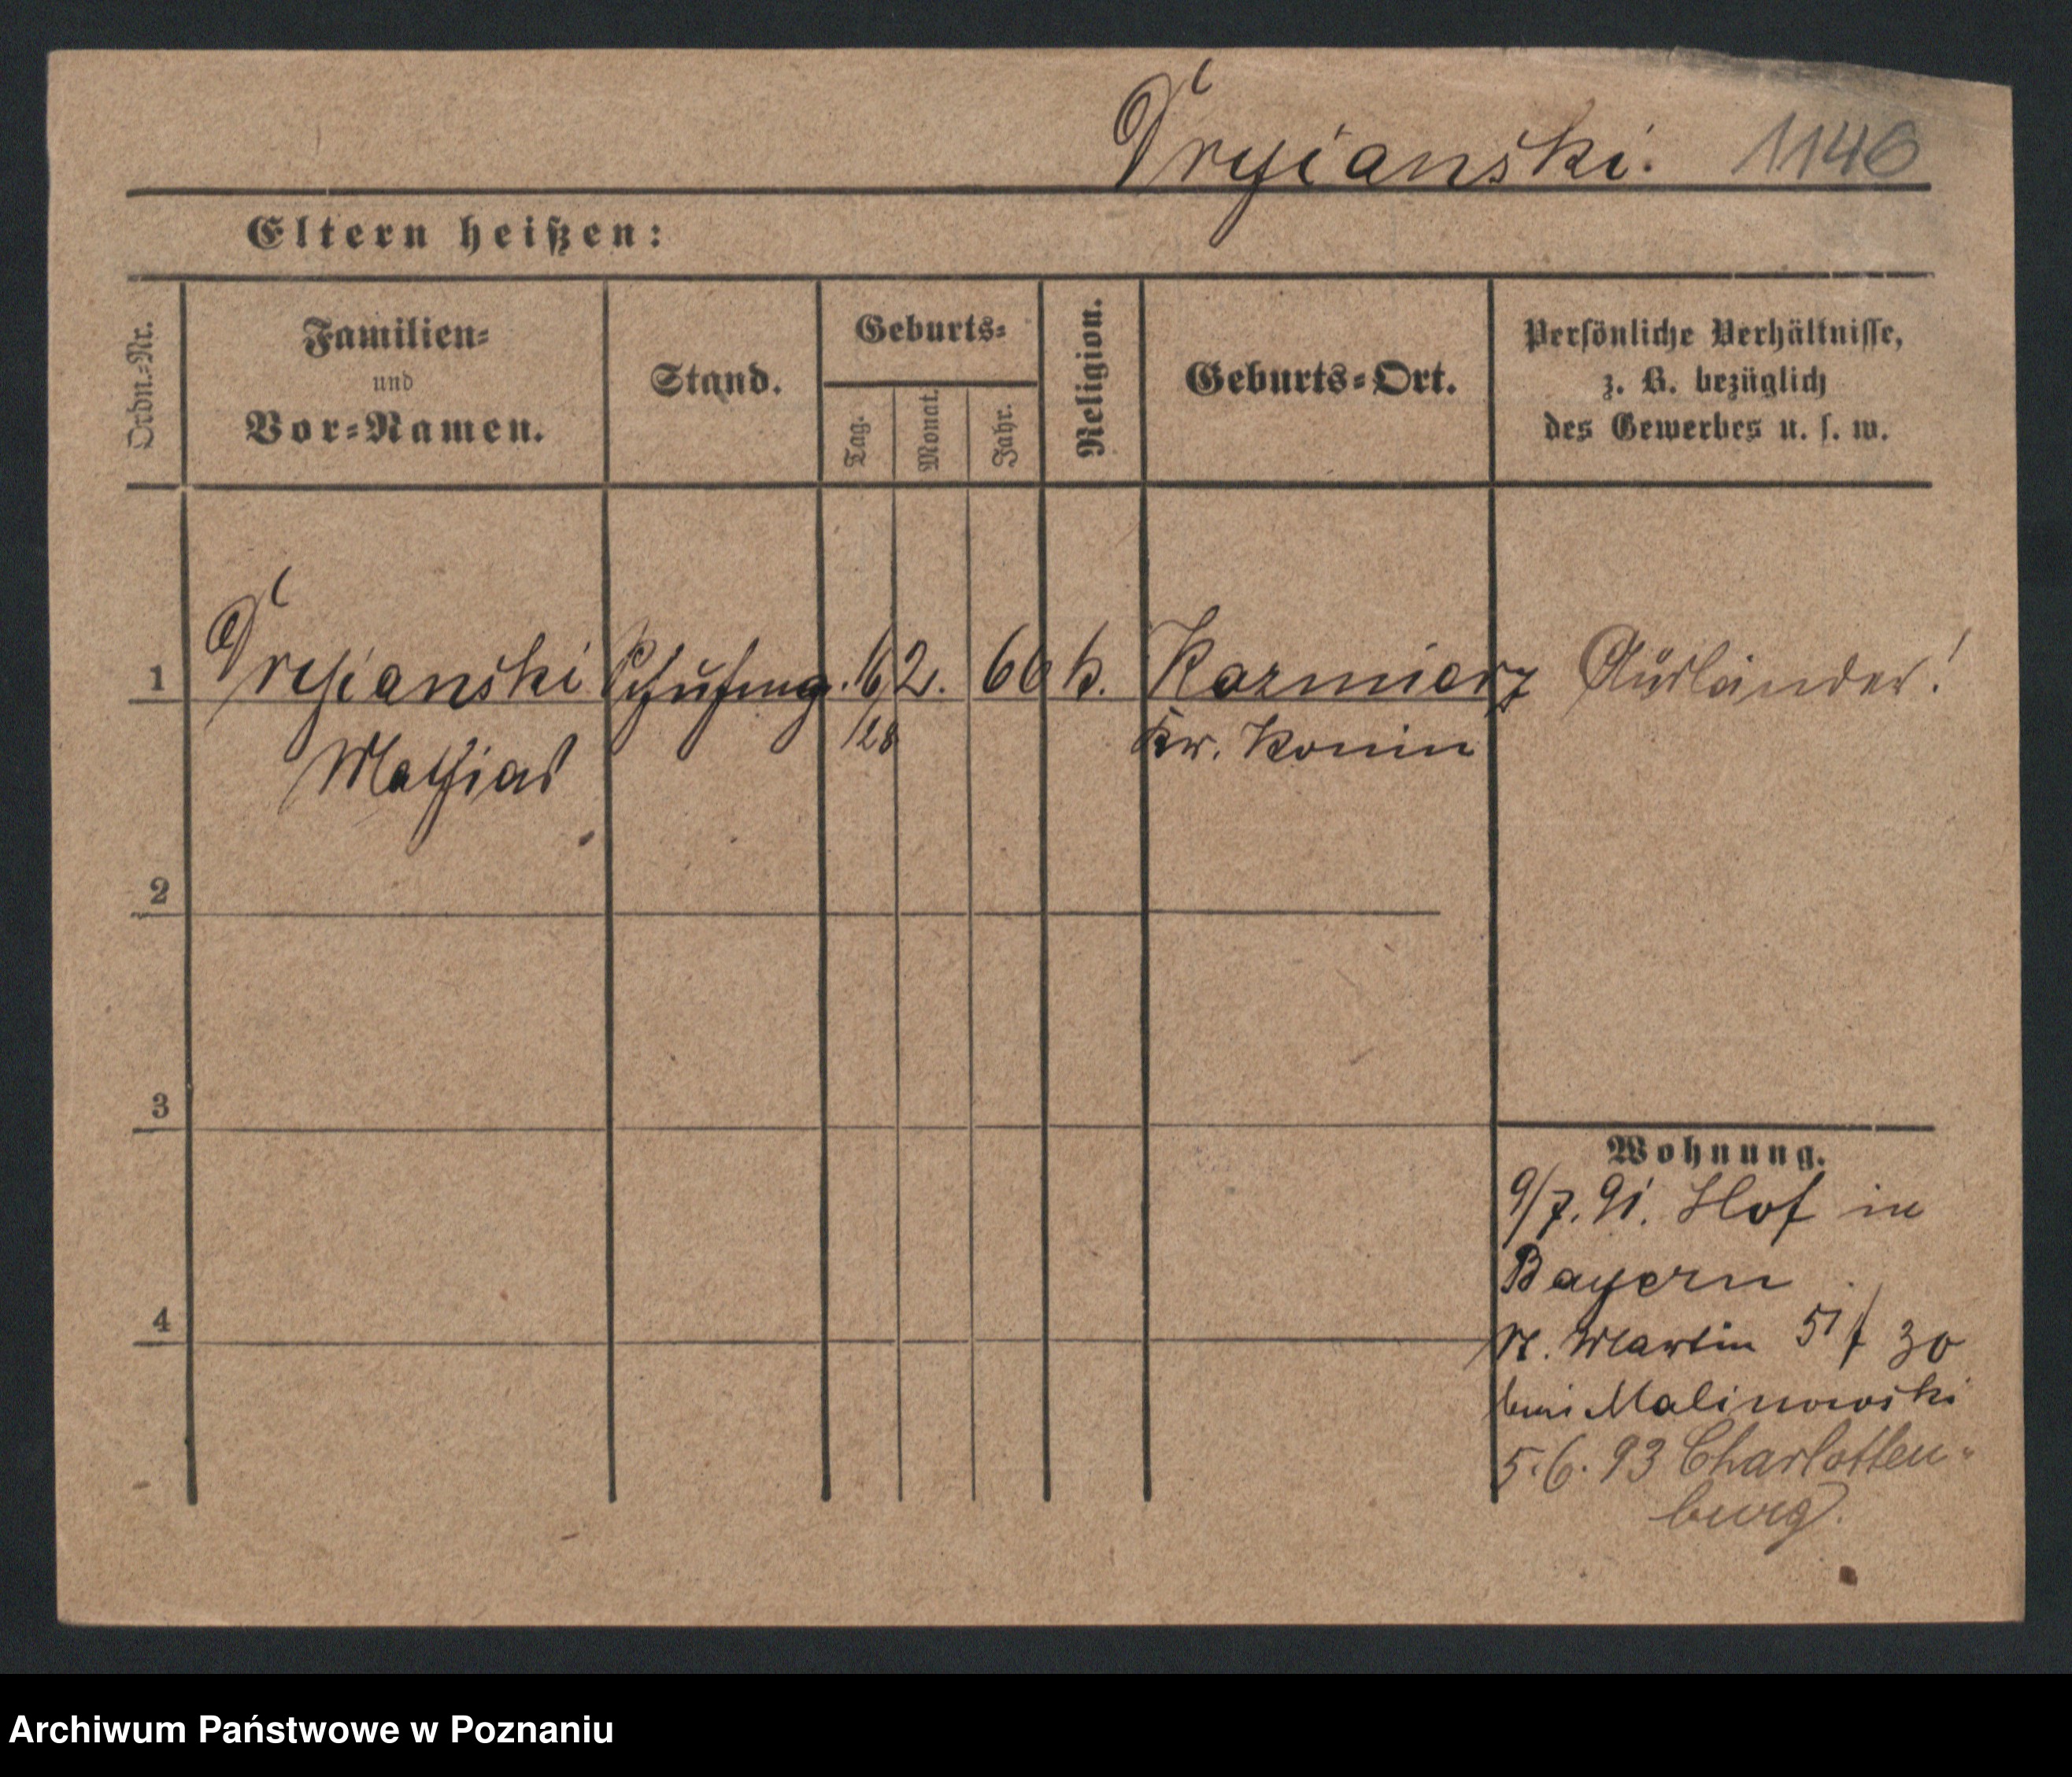 Drzianski. 1146
Eltern heißen:
Ordn.-Nr.
Familien-
und
Vor-Namen.
Stand.
Geburts-
Tag.
Monat.
Jahr.
Religion.
Geburts-Ort.
Persönliche Verhältnisse,
z. B. bezüglich
des Gewerbes u. s. w.
1 Schuhmg. 16 2. 66 k. Kazmierz Ausländer!
Mathias 128 Kr. Konin
2
3
4
Wohnung.
9/7. 91. Hof in
Bayern
St. Martin 57 f 30
bei Malinowski
5.6.93 Charlotten-
burg.
Archiwum Państwowe w Poznaniu